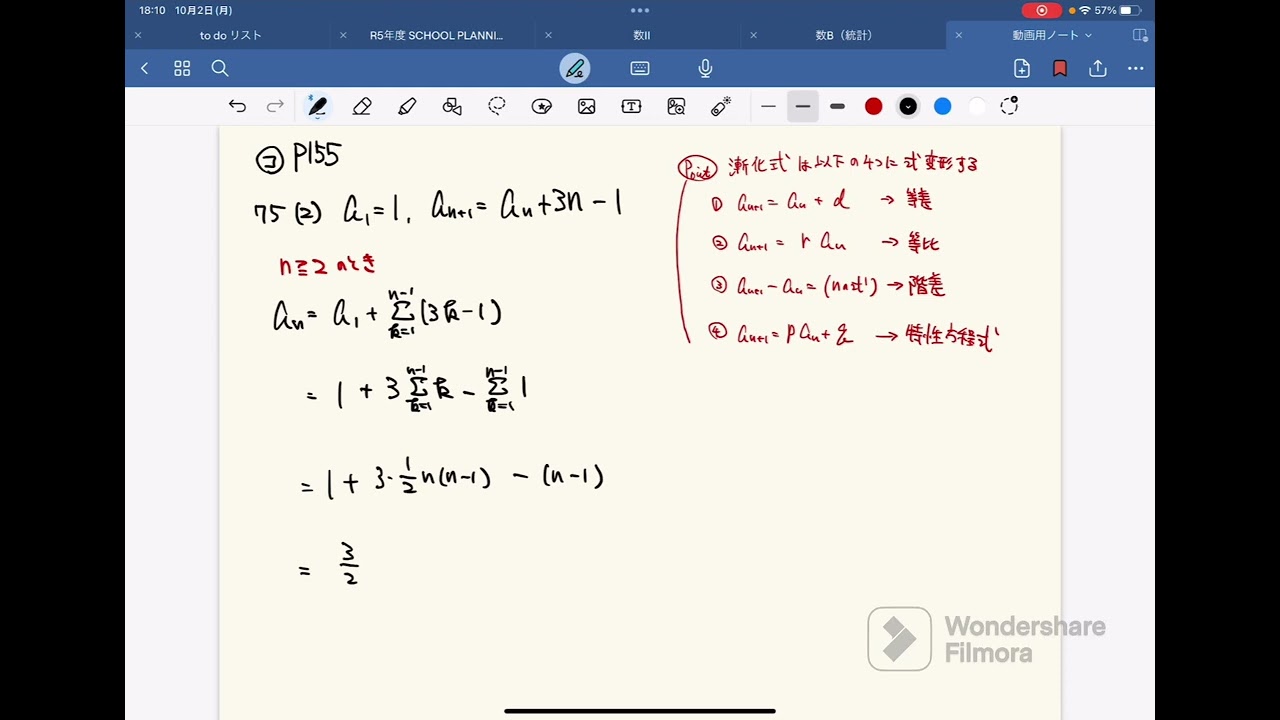 18:10 10月2日(月) 57%
to do リスト R5年度 SCHOOL PLANNI... 数II 数B（統計） 動画用ノート
㋙ P155
75 (2) a₁=1, aₙ₊₁=aₙ+3n-1
n≧2のとき
aₙ = a₁ + Σ[k=1→n-1](3k-1)
= 1 + 3Σ[k=1→n-1]k - Σ[k=1→n-1]1
= 1 + 3・1/2 n(n-1) - (n-1)
= 3/2
Point 漸化式は以下の4つに式変形する
① aₙ₊₁ = aₙ + d → 等差
② aₙ₊₁ = r aₙ → 等比
③ aₙ₊₁ - aₙ = (nの式) → 階差
④ aₙ₊₁ = p aₙ + q → 特性方程式
Wondershare
Filmora